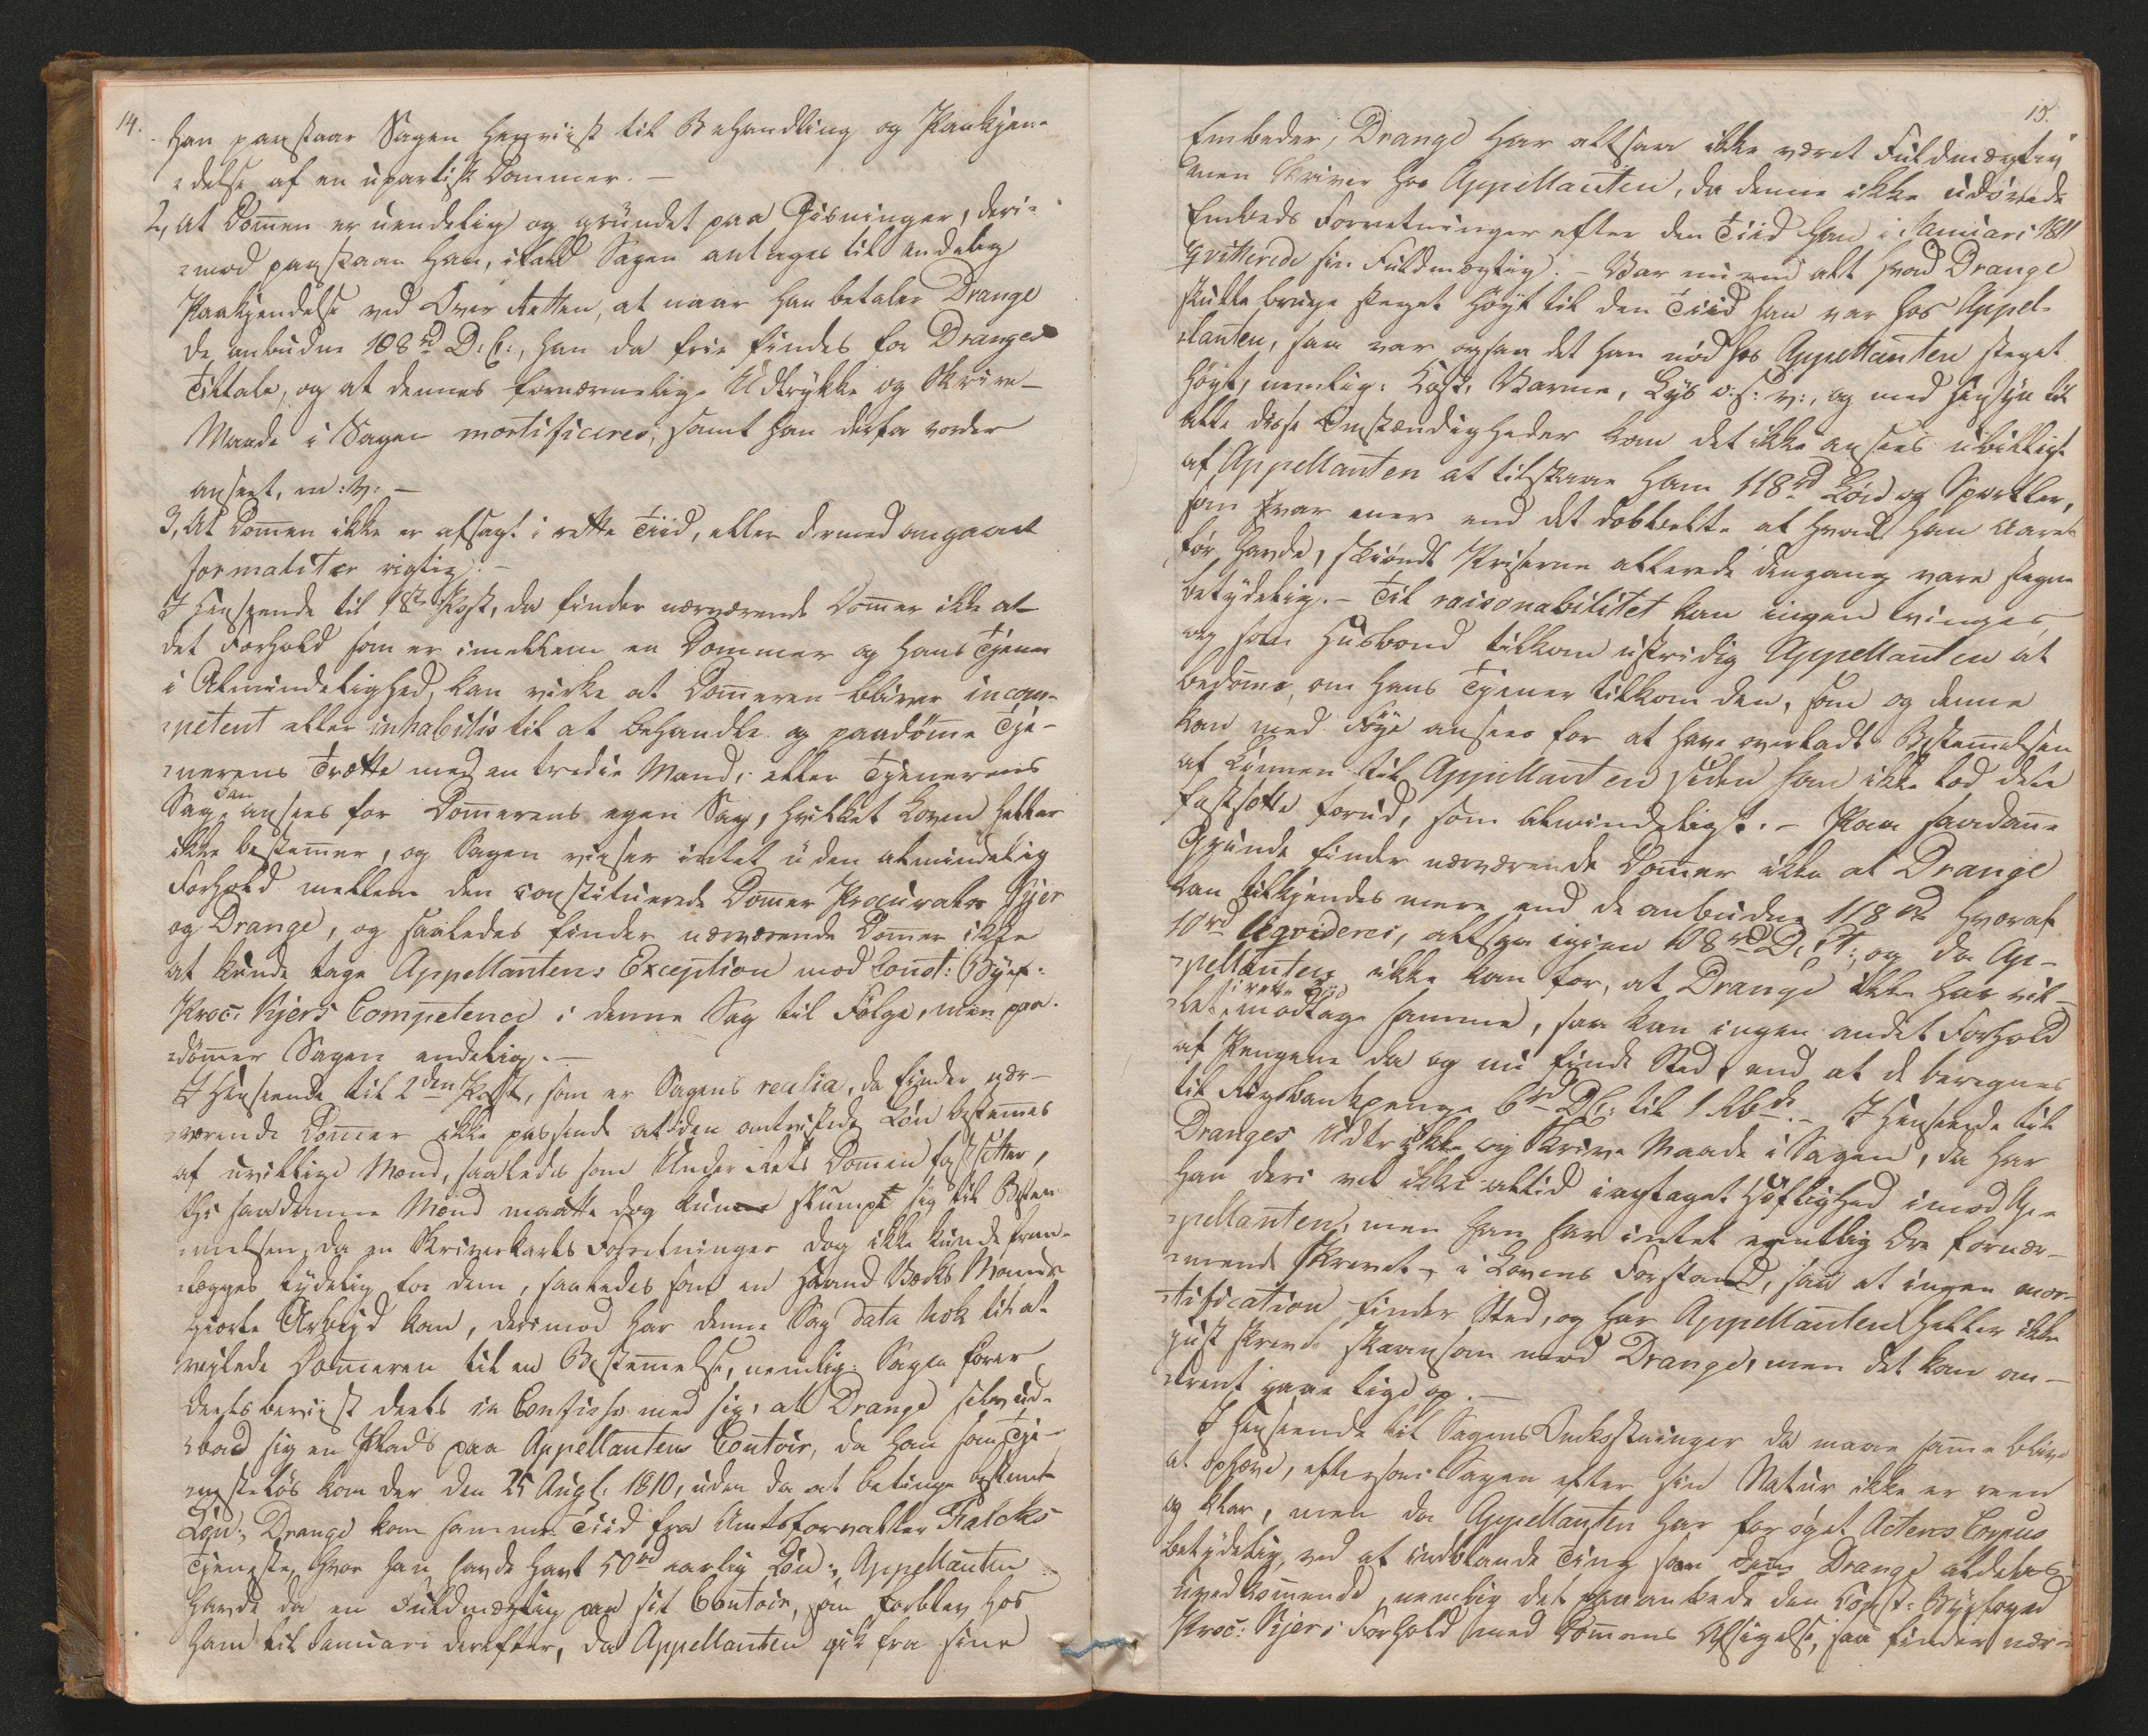 14.
Han paastaar Sagen henviist til Behandling og Paakjen-
delse af en upartisk Dommer. —
2, at Dom̄en er uendelig og grundet paa Gisninger, deri-
mod paastaar Han, ifald Sagen antages til endelig
Paakjendelse ved Over Retten, at naar Han betaler Drange
de anbudne 108 rd D: C:, Han da frie findes for Dranges
Tiltale, og at dennes fornærmelige Udtrykke og Skrive-
Maade i Sagen mortificeres, samt Han derfor vorder
anseet, m: v: —
3, At Dom̄en ikke er afsagt i rette Tiid, eller dermed omgaaet
formaliter rigtig. —
I Henseende til 1ste Post, da finder nærværende Dom̄er ikke at
det Forhold som er imellem en Dommer og Hans Tjener
i Almindelighed, kan virke at Dom̄eren bliver incom-
petent eller inhabilis til at behandle og paadøm̄e Tje-
nerens Trætte med en tredie Mand, eller Tjenerens
Sag kan ansees for Dom̄erens egen Sag, hvilket Loven heller
ikke bestem̄er, og Sagen viiser intet uden almindelig
Forhold mellem den constituerede Dom̄er Procurator Kjer
og Drange, og saaledes finder nærværende Dom̄er ikke
at kunde tage Appellantens Exception mod Const: Byef:
Proc: Kjers Competence i denne Sag til Følge, men paa-
døm̄er Sagen endelig. —
I Henseende til 2den Post, som er Sagens realia, da finder nær-
værende Dom̄er ikke passende at den omtvistede Løn bestem̄es
af uvillige Mænd, saaledes som Under Rets Dom̄en fastsætter,
thi saadanne Mænd maatte dog kunne skumpe sig til Bestem-
melsen, da en Skriverkarls Forretninger dog ikke kunde frem-
lægges tydelig for dem, saaledes som en Haand Værks Mands
giorte Arbeyd kan, derimod har denne Sag data nok til at
veylede Dom̄eren til en Bestem̄else, nemlig: Sagen fører
deels beviist deels in Confesso med sig, at Drange selv ud-
bad sig en Plads paa Appellantens Contoir, da han som Tje-
nesteløs kom der den 25 Augl: 1810, uden da at betinge bestemt
Løn; Drange kom sammen Tiid fra Amtsforvalter Falcks
Tjeneste, hvor han havde havt 50 rd aarlig Løn; Appellanten
havde da en Fuldmægtig paa sit Contoir, som forblev hos
ham til Januari derefter, da Appellanten gik fra sine
15.
Embeder, Drange har altsaa ikke været Fuldmægtig
men Skriver hos Appellanten, da denne ikke udøvede
Embeds Forretninger efter den Tiid Han i Januari 1811
qvitterede sin Fuldmægtig. – Var nu end alt hvad Drange
skulle bruge steget høyt til den Tiid han var hos Appel-
lanten, saa var ogsaa det han nød hos Appellanten steget
høyt, nemlig: Kost, Varme, Lys o: s: v:, og med Hensyn til
alle disse Omstændigheder kan det ikke ansees ubilligt
af Appellanten at tilstaae Ham 118 rd Løn og Sportler,
som svar mere end det dobbelte af hvad Han Aaret
før havde, skiøndt Priserne allerede dengang vare stegne
betydelig. – Til raisonabilitet kan ingen tvinges,
og som Husbond tilkom ustridig Appellanten at
bedøm̄e, om Hans Tjener tilkom den, som og denne
kan med Føye ansees for at have overladt Bestem̄elsen
af Lønnen til Appellanten siden han ikke lod den
fastsætte forud, som almindeligt. – Paa saadanne
Grunde finder nærværende Dom̄er ikke at Drange
kan tilkjendes mere end de anbudne 118 rd hvoraf
10 rd liqviderei, altsaa igien 108 rd D. C:; og da Ap-
pellanten ikke kan for, at Drange ikke har vil-
let i rette Tiid modtage samme, saa kan ingen andet Forhold
af Pengene da og nu finde Sted, end at de beregnes
til Rigsbankpenge 6 rd D C: til 1 Rbd. – I Henseende til
Dranges Udtrykke og Skrive Maade i Sagen, da har
Han deri vel ikke altid iagtaget Høflighed imod Ap-
pellanten, men han har intet egentlig Ære fornær-
mende skrevet i Lovens Forstand, saa at ingen mor-
tification finder Sted, og har Appellanten heller ikke
just skrevet skaansom mod Drange, men det kan om-
trent gaae lige op. —
I Henseende til Sagens Omkostninger da maae sam̄e blive
at ophæve, eftersom Sagen efter sin Natur ikke er reen
og klar, men da Appellanten har forøget Actens Corpus
betydelig, ved at indblande Ting som ere Drange aldeles
uvedkommende, nemlig det paaankede den Const: Byefoged
Proc: Kjers Forhold med Dom̄ens Afsigelse, saa finder nær-